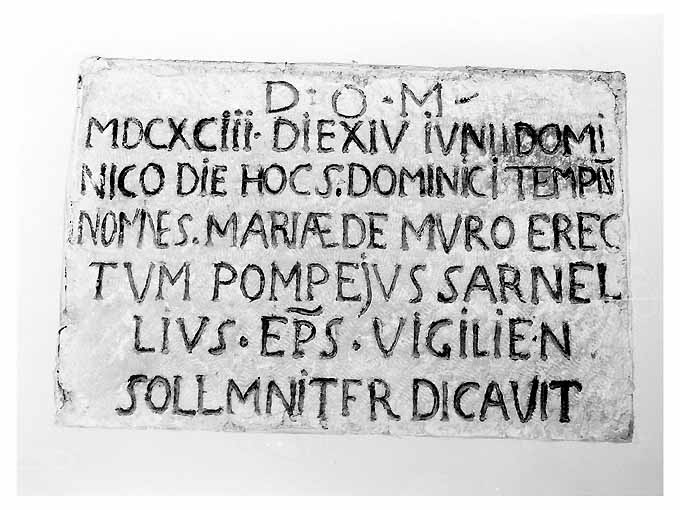 D·O·M·
MDCXCIII· DIEXIV IVNII DOMI
NICO DIE HOC S. DOMINICI TEMPĪV
NOMNES. MARIÆ DE MVRO EREC
TVM POMPEJVS SARNEL
LIVS · EP̄S · VIGILIEN
SOLLMNITER DICAVIT